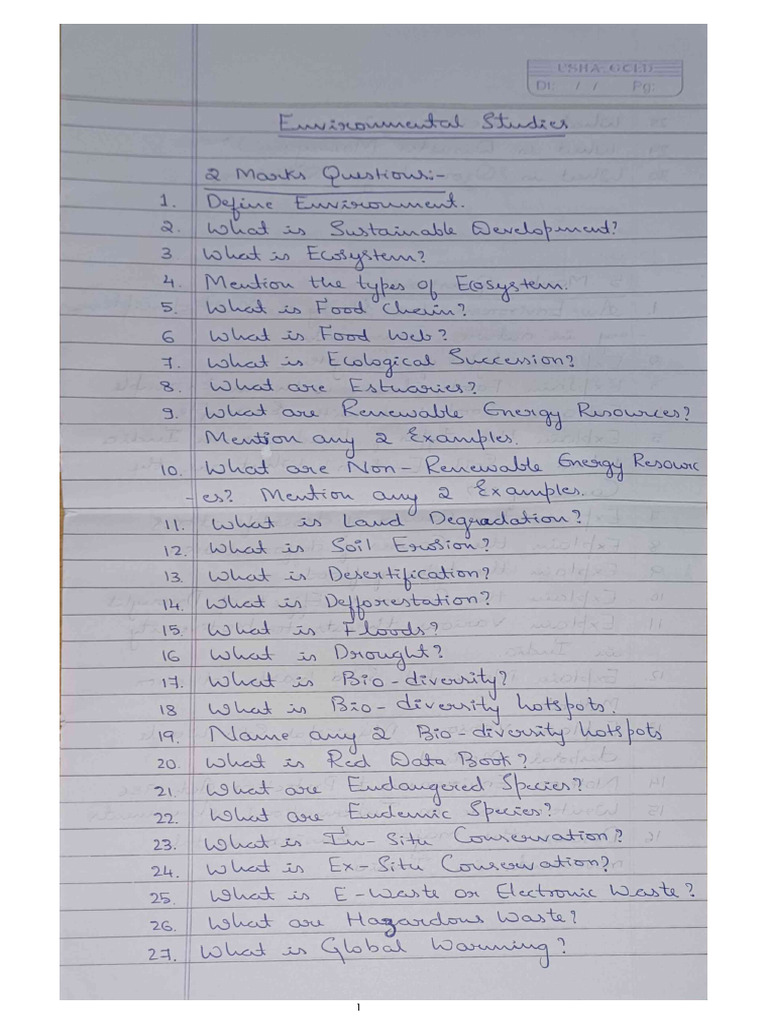 USHA
Dt: / / Pg:
Environmental Studies
2 Marks Questions:-
1. Define Environment.
2. What is Sustainable Development?
3 What is Ecosystem?
4. Mention the types of Ecosystem.
5. What is Food Chain?
6 What is Food Web?
7. What is Ecological Succession?
8. What are Estuaries?
9. What are Renewable Energy Resources?
Mention any 2 Examples.
10. What are Non-Renewable Energy Resourc
-es? Mention any 2 Examples.
11. What is Land Degradation?
12. What is Soil Erosion?
13. What is Desertification?
14. What is Defforestation?
15. What is Floods?
16 What is Drought?
17. What is Bio-diversity?
18 What is Bio-diversity hotspots.
19. Name any 2 Bio-diversity hotspots
20. What is Red Data Book?
21. What are Endangered Species?
22. What are Endemic Species?
23. What is In-Situ Conservation?
24. What is Ex-Situ Conservation?
25. What is E-Waste or Electronic Waste?
26. What are Hazardous Waste?
27. What is Global Warming?
1